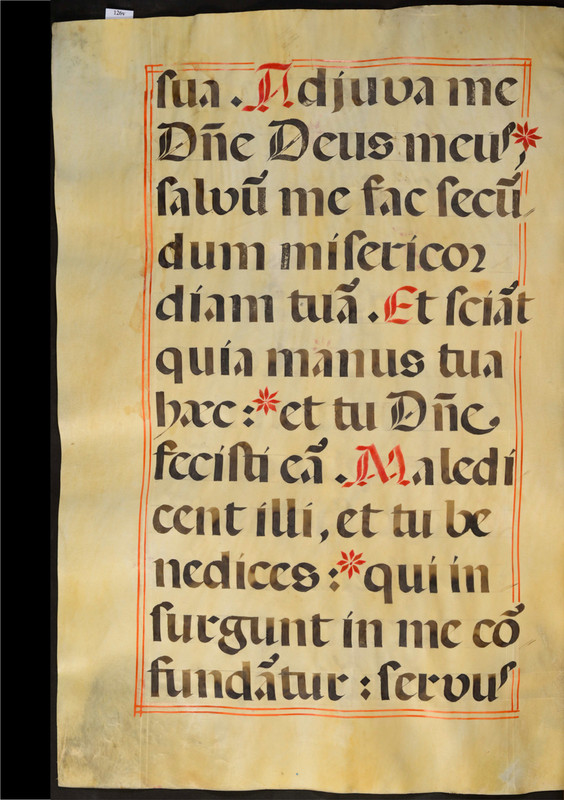 126v
ſua . Adjuva me
Dñe Deus meus,*
ſalvū me fac ſecū
dum miſericoꝛ
diam tuā . Et ſciāt
quia manus tua
hæc :* et tu Dñe
feciſti eā . Maledi
cent illi, et tu be
nedices :* qui in
ſurgunt in me cō
fundātur : ſervus